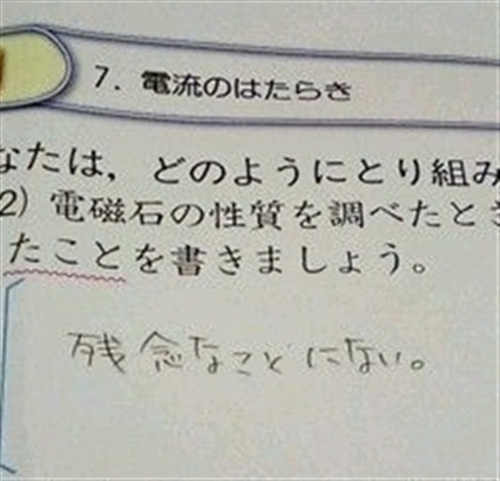 7. 電流のはたらき
なたは，どのようにとり組み
2) 電磁石の性質を調べたとき
たことを書きましょう。
残念なことにない。